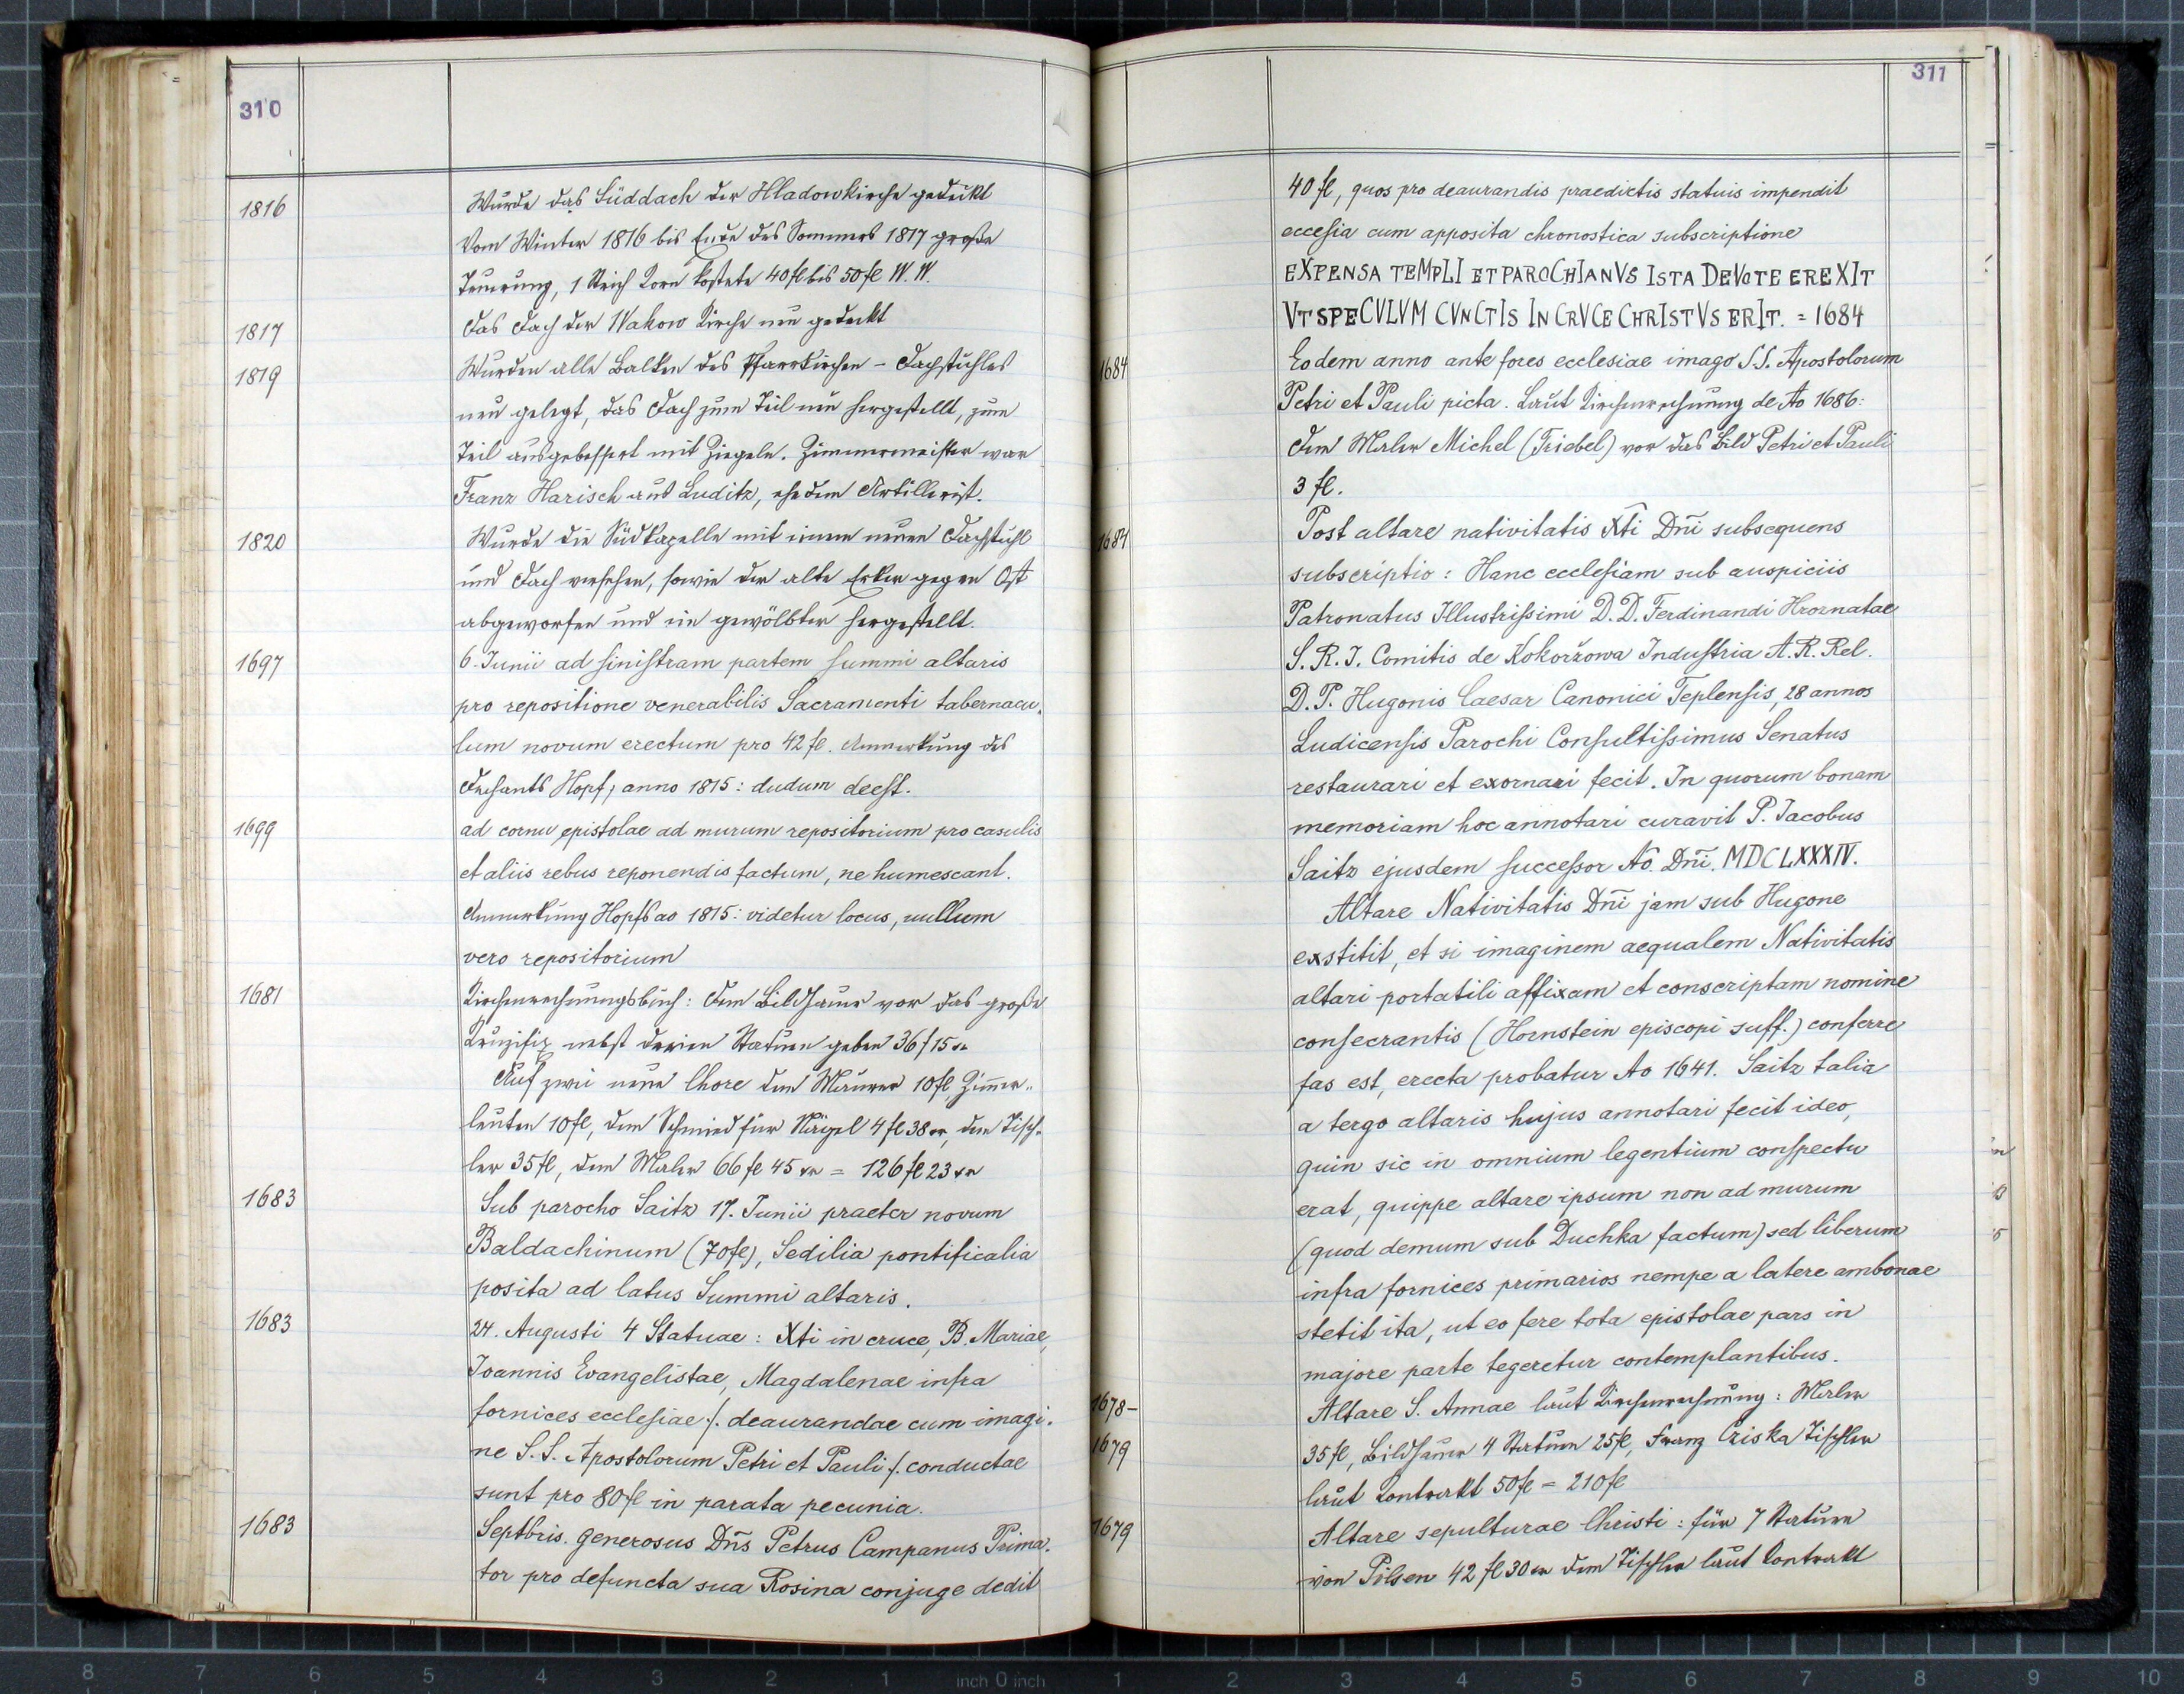 310
1816 Wurde das Süddach der Hladowkirche gedeckt
Vom Winter 1816 bis Ende des Sommers 1817 große
Teuerung, 1 Strich Korn kostete 40 fl bis 50 fl W. W.
1817 Das Dach der Wakow Kirche neu gedeckt
1819 Wurden alle Balken des Pfarrkirchen - Dachstuhles
neu gelegt, das Dach zum Teil neu hergestellt, zum
Teil ausgebessert mit Ziegeln. Zimmermeister war
Franz Harisch aus Luditz, ehedem Artillerist.
1820 Wurde die Südkapelle mit einem neuen Dachstuhl
und Dach versehen, sowie der alte Erker gegen Ost
abgeworfen und ein gewölbter hergestellt.
1697 6. Junii ad sinistram partem summi altaris
pro repositione venerabilis Sacramenti tabernacu-
lum novum erectum pro 42 fl. Anmerkung des
Dechants Hopf, anno 1815: dudum deest.
1699 ad cornu epistolae ad murum repositorium pro casulis
et aliis rebus reponendis factum, ne humescant.
Anmerkung Hopfs ao 1815: videtur locus, nullum
vero repositorium
1681 Kirchenrechnungsbuch: Dem Bildhauer vor das große
Kruzifix nebst dreien Statuen geben 36 f 15 xr
Auf zwei neue Chore dem Maurer 10 fl, Zimmer-
leuten 10 fl, dem Schmied für Nägel 4 fl 38 xr, dem Tisch-
ler 35 fl, dem Maler 66 fl 45 xr = 126 fl 23 xr
1683 Sub parocho Saitz 17. Junii praeter novum
Baldachinum (70 fl), Sedilia pontificalia
posita ad latus Summi altaris.
1683 24. Augusti 4 Statuae: Xti in cruce, B. Mariae,
Joannis Evangelistae, Magdalenae infra
fornices ecclesiae /. deaurandae cum imagi-
ne S. S. Apostolorum Petri et Pauli /. conductae
sunt pro 80 fl in parata pecunia.
1683 Septbris. generosus Dn̄s Petrus Campanus Prima-
tor pro defuncta sua Rosina conjuge dedit
311
40 fl, quos pro deaurandis praedictis statuis impendit
eccesia cum apposita chronostica subscriptione
EXPENSA TEMPLI ET PAROCHIANVS ISTA DEVOTE EREXIT
VT SPECVLVM CVNCTIS IN CRVCE CHRISTVS ERIT. = 1684
1684 Eodem anno ante fores ecclesiae imago S.S. Apostolorum
Petri et Pauli picta. Laut Kirchenrechnung de Ao 1686:
Dem Maler Michel (Triebel) vor das Bild Petri et Pauli
3 fl.
1684 Post altare nativitatis Xti Dn̄i subsequens
subscriptio: Hanc ecclesiam sub auspiciis
Patronatus Illustrissimi D. D. Ferdinandi Hroznatae
S. R. J. Comitis de Kokořzowa Industria A. R. Rel.
D. P. Hugonis Caesar Canonici Teplensis, 28 annos
Ludicensis Parochi Consultissimus Senatus
restaurari et exornari fecit. In quorum bonam
memoriam hoc annotari curavit P. Jacobus
Saitz ejusdem successor Ao. Dn̄i. MDCLXXXIV.
Altare Nativitatis Dn̄i jam sub Hugone
exstitit, et si imaginem aequalem Nativitatis
altari portatili affixam et conscriptam nomine
consecrantis (Hornstein episcopi suff.) conferre
fas est, erecta probatur Ao 1641. Saitz talia
a tergo altaris hujus annotari fecit ideo,
quin sic in omnium legentium conspectu
erat, quippe altare ipsum non ad murum
(quod demum sub Duchka factum) sed liberum
infra fornices primarios nempe a latere ambonae
stetit ita, ut eo fere tota epistolae pars in
majore parte tegeretur contemplantibus.
1678- Altare S. Annae laut Kirchenrechnung: Maler
1679 35 fl, Bildhauer 4 Statuen 25 fl, Franz Cziska Tischler
laut Kontrakt 50 fl = 210 fl
1679 Altare sepulturae Christi: für 7 Statuen
von Pilsen 42 fl 30 xr dem Tischler laut Kontrakt
8 7 6 5 4 3 2 1 inch 0 inch 1 2 3 4 5 6 7 8 9 10